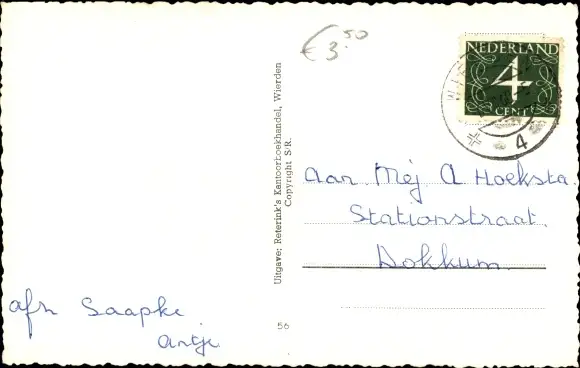 € 3.50
NEDERLAND
4
CENT
4
Uitgave: Reterink's Kantoorboekhandel, Wierden
Copyright S/R.
Aan Mej A Hoeksta.
Stationstraat.
Dokkum.
afz Saapke
Antje
56